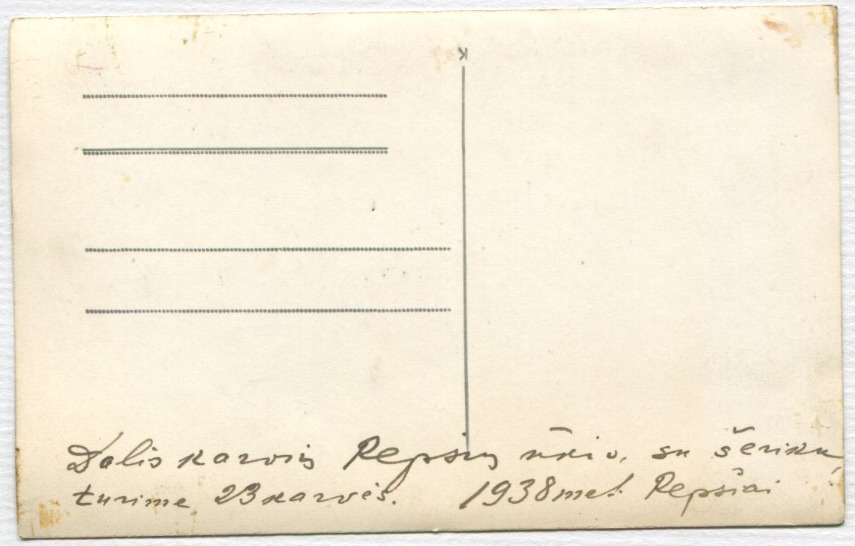 K
Dalis karvių Repšių ūkio, su šėriku,
turime 23 karvės. 1938 met. Repšiai